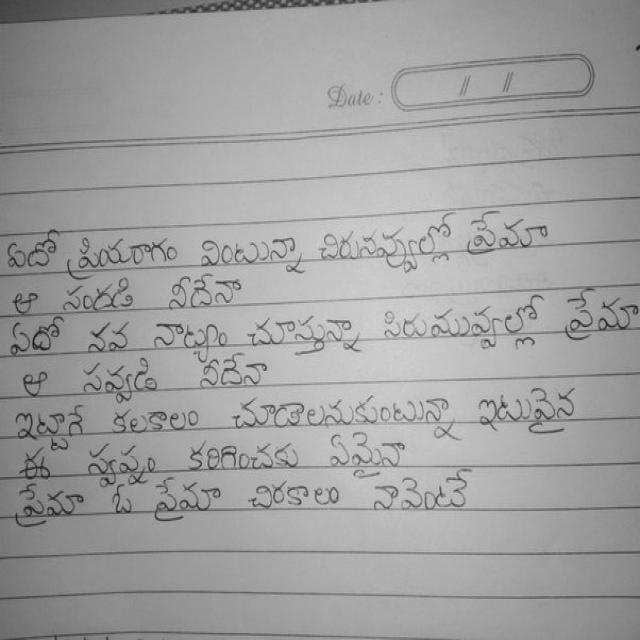 Date : // //
ఏదో ప్రియరాగం వింటున్నా చిరునవ్వుల్లో ప్రేమా
ఆ సందడి నీదేనా
ఏదో నవ నాట్యం చూస్తున్నా సిరుమువ్వల్లో ప్రేమా
ఆ సవ్వడి నీదేనా
ఇట్టాగే కలకాలం చూడాలనుకుంటున్నా ఇటుపైన
ఈ స్వప్నం కరిగించకు ఏమైనా
ప్రేమా ఓ ప్రేమా చిరకాలం నావెంటే